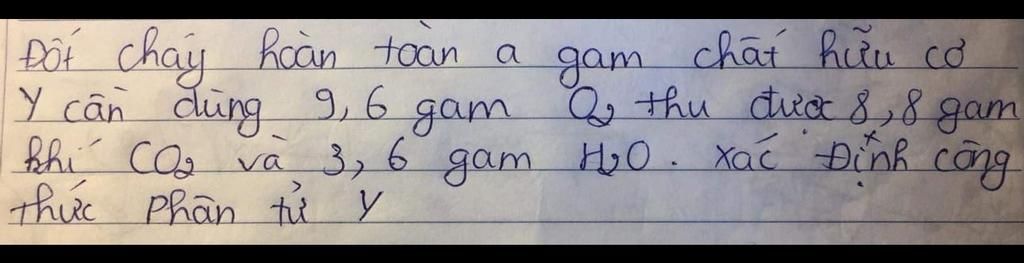 Đốt cháy hoàn toàn a gam chất hữu cơ
Y cần dùng 9,6 gam O2 thu được 8,8 gam
khí CO2 và 3,6 gam H2O. Xác Định công
thức phân tử Y